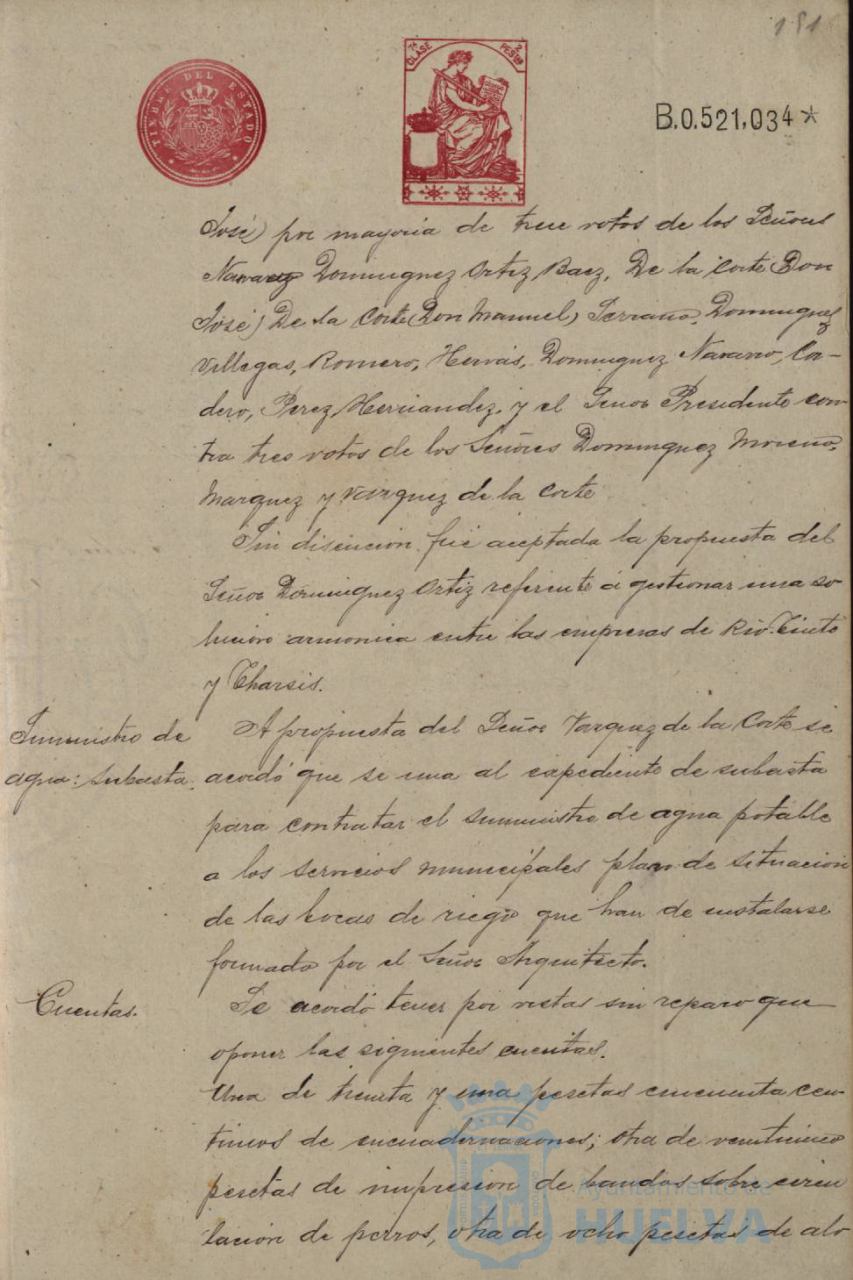 151
TIMBRE DEL ESTADO
7ª CLASE 2 PESTAS
B.0.521,034*
José) por mayoria de trece votos de los Señores
Navarro Dominguez Ortiz Baez, De la Corte (Don
José) De la Corte (Don Manuel) Serrano, Dominguez
Villegas, Romero, Hervás, Dominguez Navarro, Cor-
dero, Perez Hernandez, y el Señor Presidente con-
tra tres votos de los Señores Dominguez Moreno,
Marquez y Vazquez de la Corte
Sin discucion fué aceptada la propuesta del
Señor Dominguez Ortiz referente á gestionar una so-
lucion armonica entre las empresas de Rio-Tinto
y Tharsis.
Suministro de
agua: subasta.
A propuesta del Señor Vazquez de la Corte se
acordó que se una al expediente de subasta
para contratar el suministro de agua potable
a los servicios municipales plano de situacion
de las bocas de riego que han de instalarse
formado por el Señor Arquitecto.
Cuentas.
Se acordó tener por vistas sin reparo que
oponer las siguientes cuentas.
Una de treinta y una pesetas cincuenta cen-
timos de encuadernaciones; otra de veinticinco
pesetas de impresion de bandos sobre circu
lación de perros, otra de ocho pesetas de alo
Ayuntamiento de
HUELVA